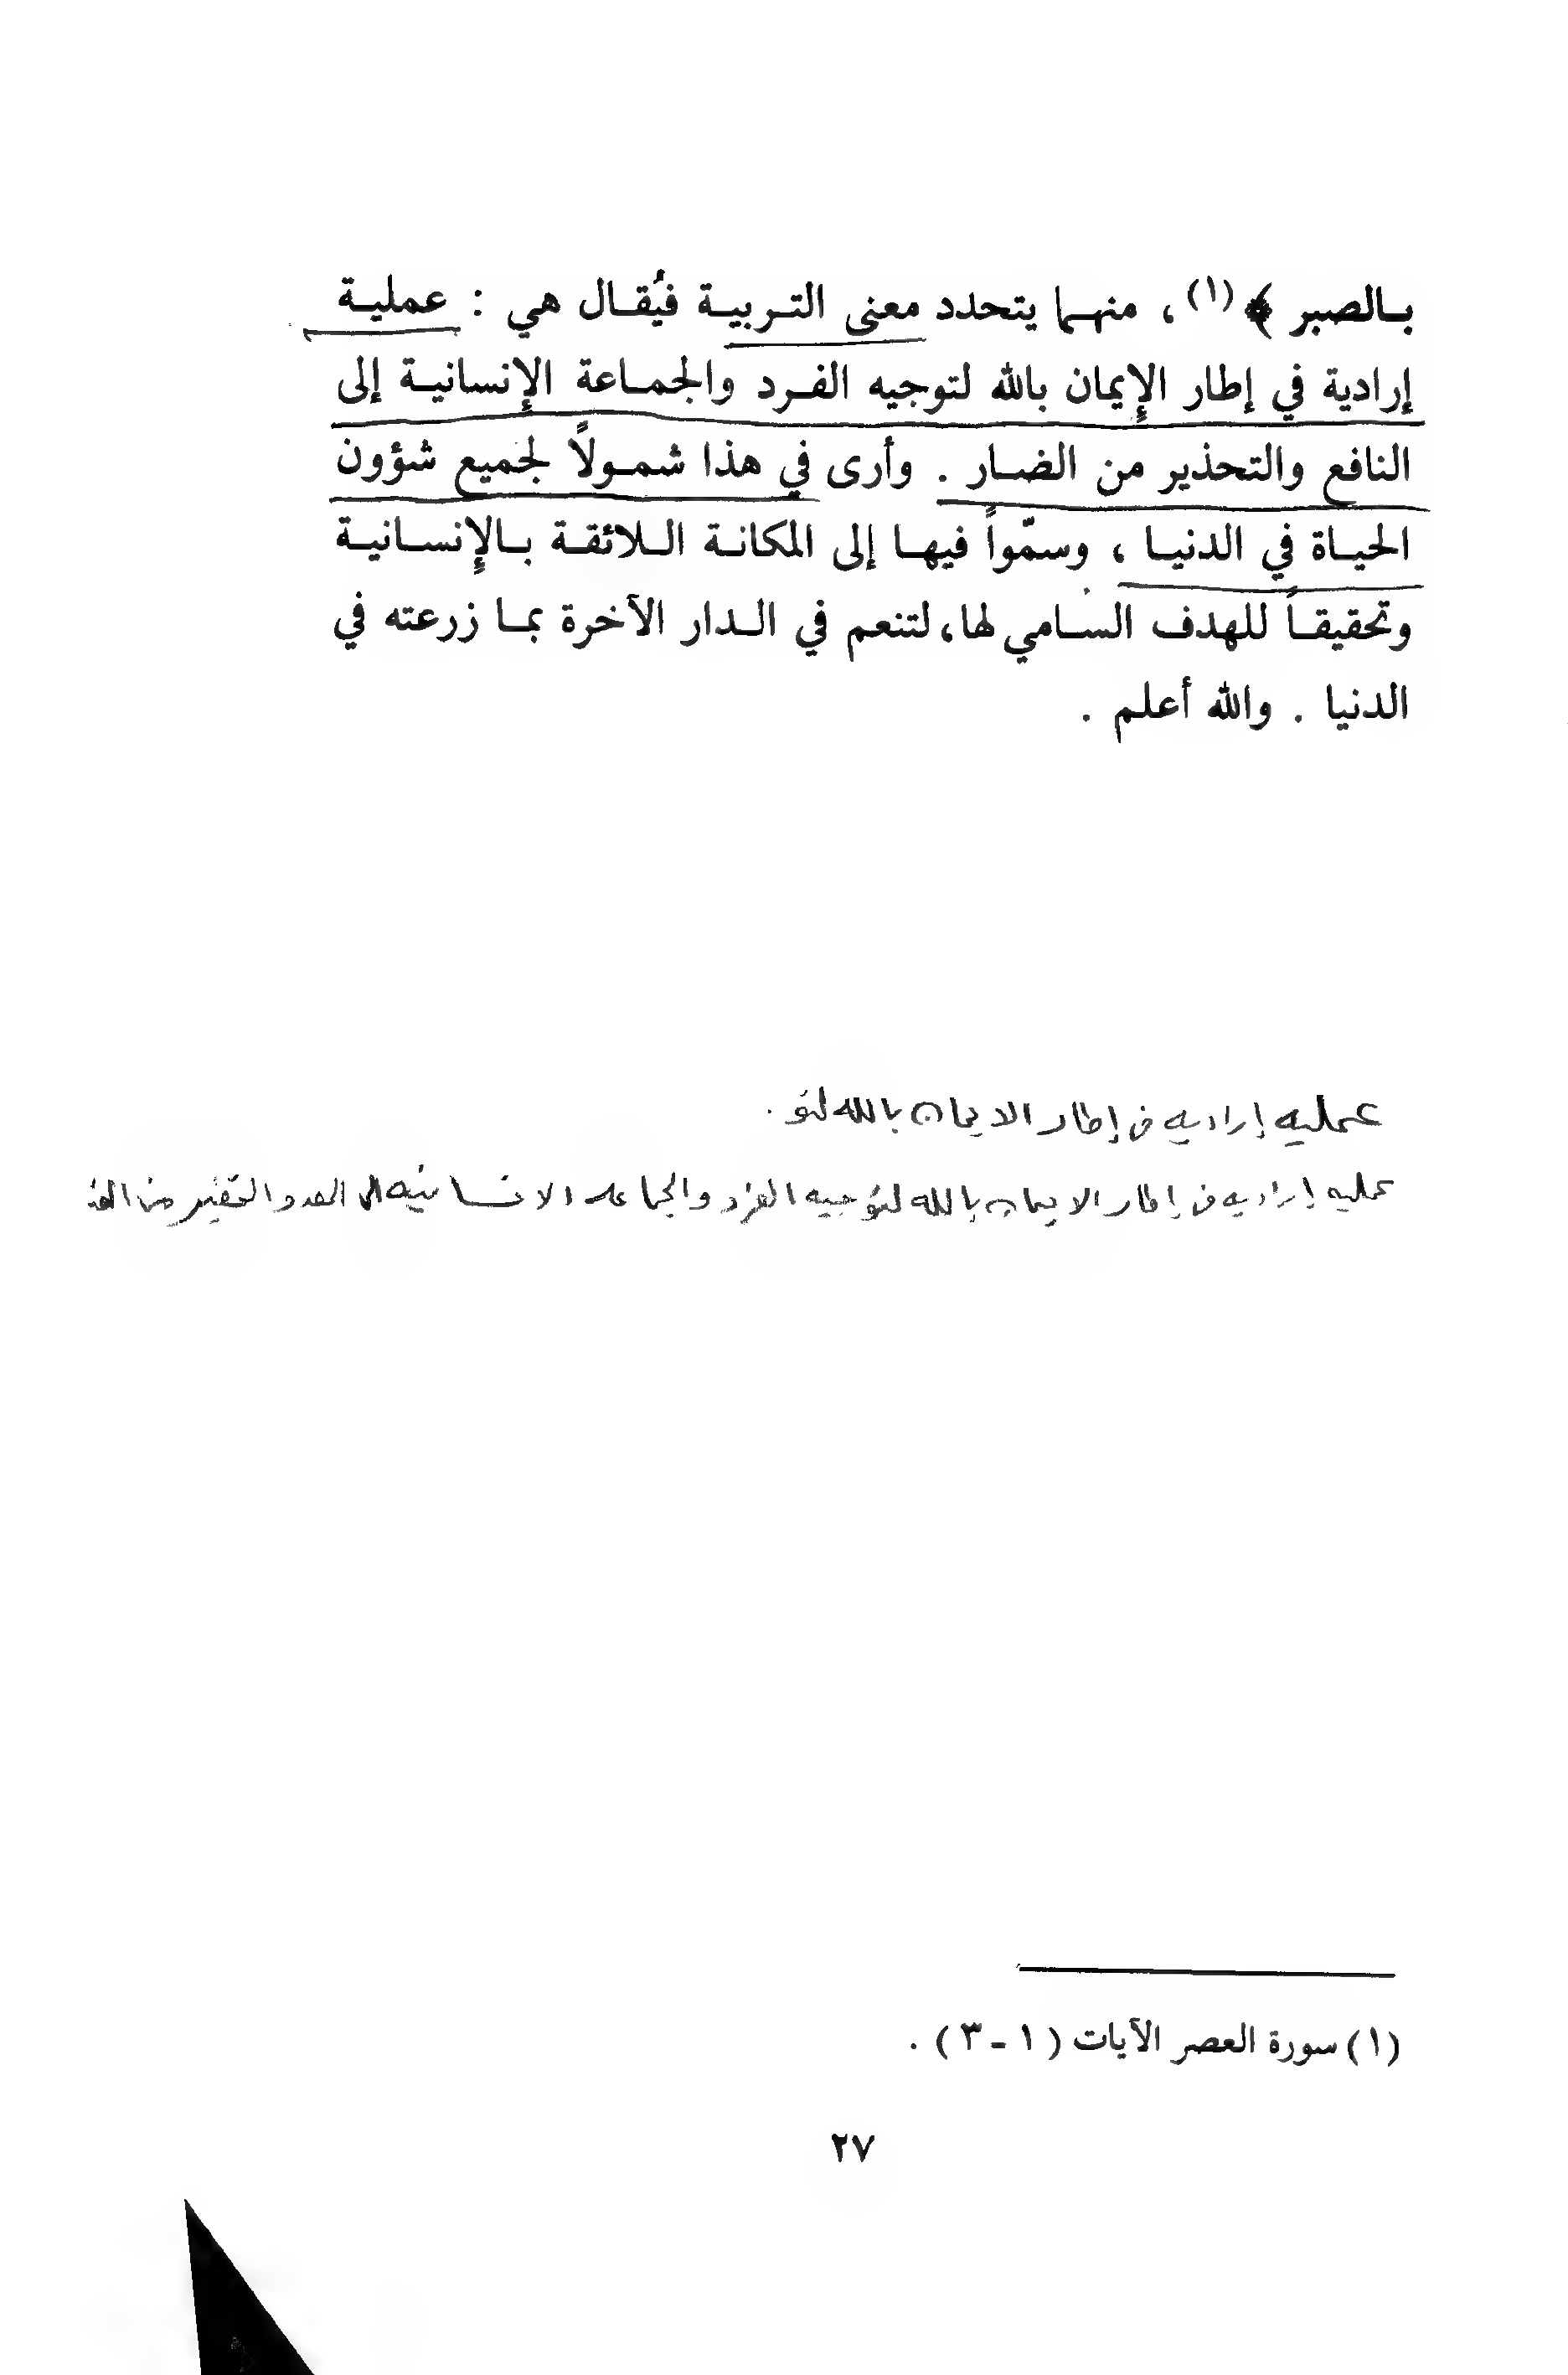 بالصبر ﴾(١) ، منهما يتحدد معنى التربية فيُقال هي : عملية
إرادية في إطار الإيمان بالله لتوجيه الفرد والجماعة الإنسانية إلى
النافع والتحذير من الضار . وأرى في هذا شمولاً لجميع شؤون
الحياة في الدنيا ، وسمّواً فيها إلى المكانة اللائقة بالإنسانية
وتحقيقاً للهدف السامي لها، لتنعم في الدار الآخرة بما زرعته في
الدنيا . والله أعلم .
عمليه إراديه في إطار الايمان بالله لتو .
عمليه إراديه في إطار الايمان بالله لتوجيه الفرد والجماعه الانسانيه الى
(١) سورة العصر الآيات ( ١ - ٣ ) .
٢٧